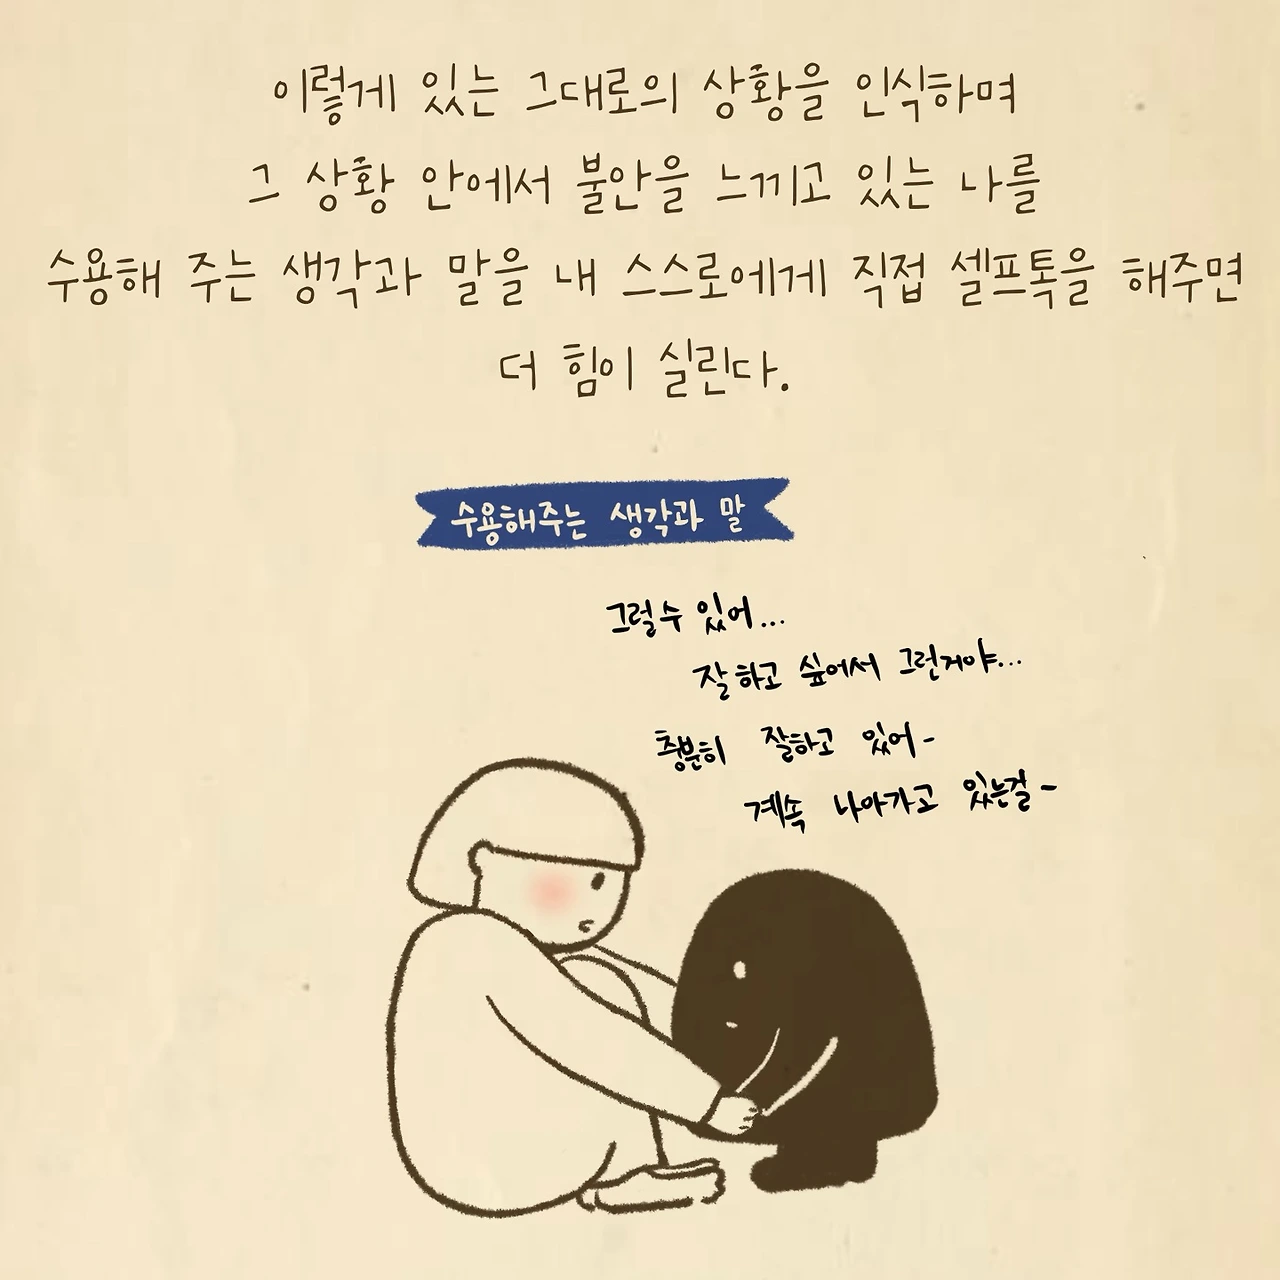 이렇게 있는 그대로의 상황을 인식하며
그 상황 안에서 불안을 느끼고 있는 나를
수용해 주는 생각과 말을 내 스스로에게 직접 셀프톡을 해주면
더 힘이 실린다.
수용해주는 생각과 말
그럴수 있어...
잘하고 싶어서 그런거야...
충분히 잘하고 있어-
계속 나아가고 있는걸-